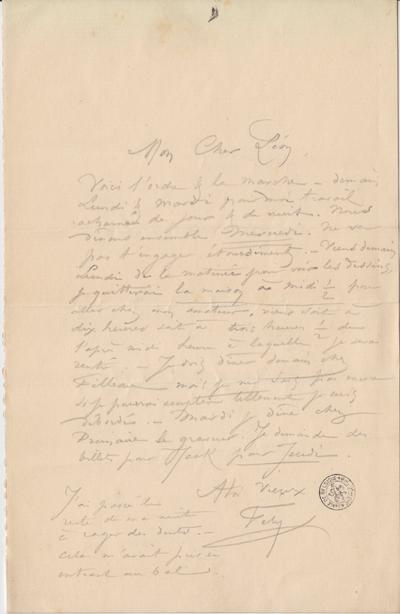 Mon Cher Léon,
Voici l'ordre & la marche – demain,
Lundi & Mardi pour moi travail
acharné de jour & de nuit. Nous
dînons ensemble Mercredi. Ne va
pas t'engager étourdiment. – Viens demain
Lundi de la matinée pour voir les dessins,
je quitterai la maison à midi ½ pour
aller chez mon amateur, viens soit à
dix heures soit à trois heures ½ de
l'après midi heure à laquelle je serai
rentré. – Je dois dîner demain chez
Filleau mais je ne sais pas encore
si je pourrai accepter tellement je suis
débordé. – Mardi je dîne chez
le graveur. Je demande des
billets pour Jack pour Jeudi.
A toi Vieux
Fély
J'ai passé le
reste de ma nuit
à rager des dents. –
cela m'avait pris en
entrant au bal.